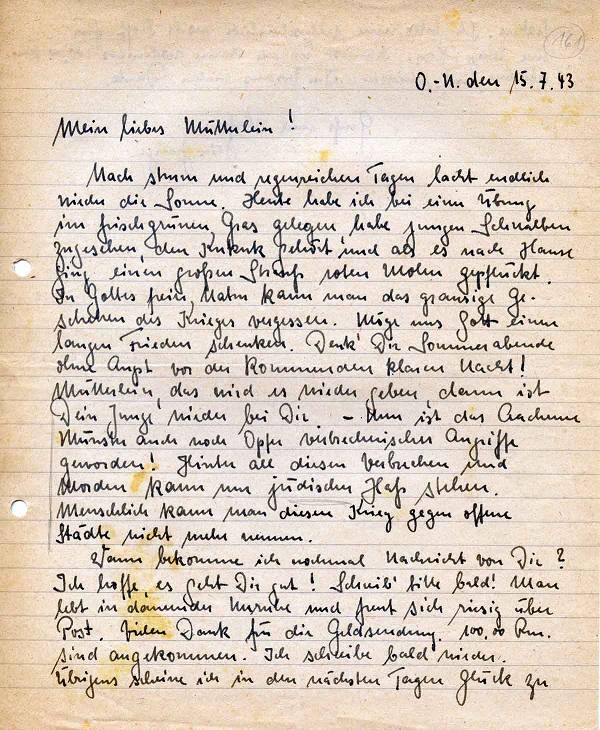 161
O.-U. den 15.7.43
Mein liebes Mütterlein!
Nach sturm und regenreichen Tagen lacht endlich
wieder die Sonne. Heute habe ich bei einer Übung
im frischgrünen Gras gelegen, habe jungen Schwalben
zugesehen, den Kukuk gehört und als es nach Hause
ging einen großen Strauß roten Mohn gepflückt.
In Gottes freier Natur kann man das grausige Ge-
schehen des Krieges vergessen. Möge uns Gott einen
langen Frieden schenken. Denk' Dir Sommerabende
ohne Angst vor der kommenden klaren Nacht!
Mütterlein, das wird es wieder geben, dann ist
Dein Junge wieder bei Dir. – Nun ist das Aachener
Münster auch noch Opfer verbrecherischer Angriffe
geworden! Hinter all diesen Verbrechen und
Morden kann nur jüdischer Haß stehen.
Menschlich kann man diesen Krieg gegen offene
Städte nicht mehr nennen.
Wann bekomme ich nochmal Nachricht von Dir?
Ich hoffe, es geht Dir gut! Schreib' bitte bald! Man
lebt in dauernder Unruhe und freut sich riesig über
Post. Vielen Dank für die Geldsendung. 100,00 Rm.
sind angekommen. Ich schreibe bald wieder.
Übrigens scheine ich in den nächsten Tagen Glück zu